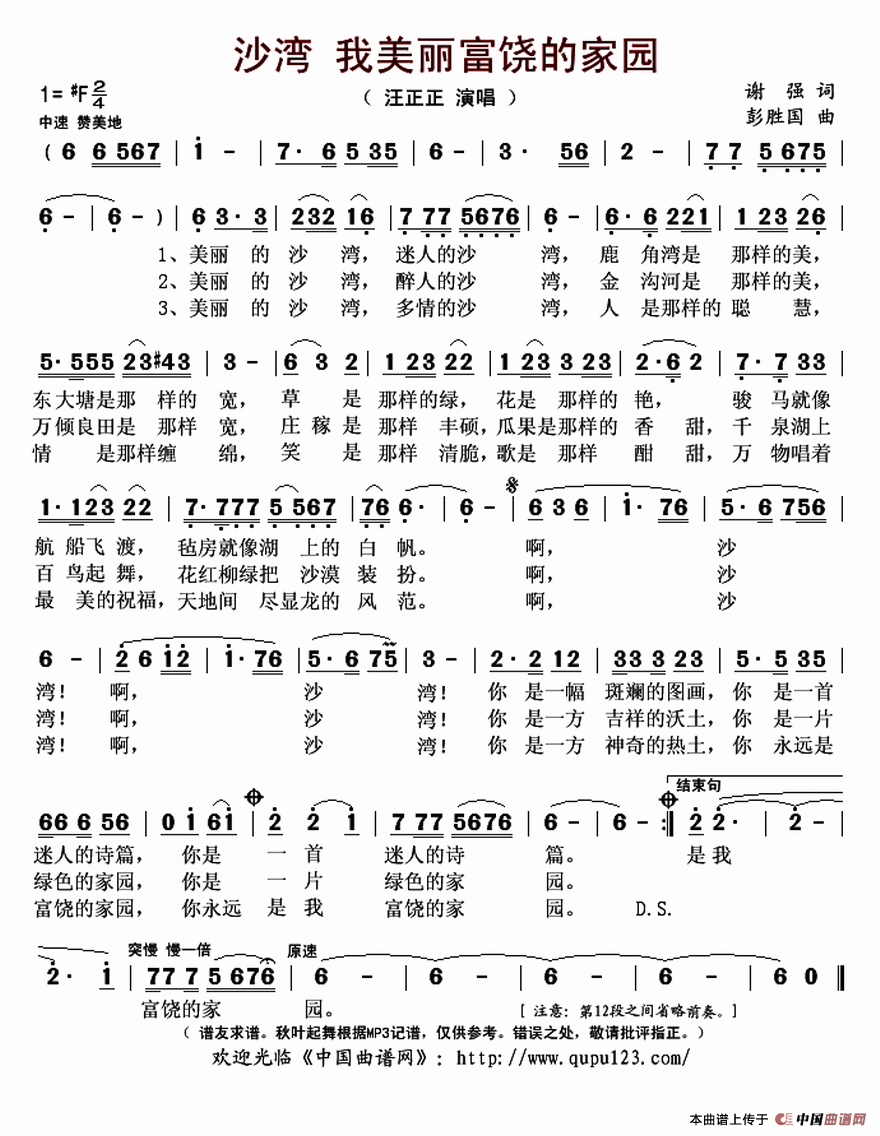 沙湾 我美丽富饶的家园
1= #F 2/4
( 汪正正 演唱 )
谢 强 词
中速 赞美地
彭胜国 曲
( 6 6 567 | i - | 7· 6 5 35 | 6 - | 3· 56 | 2 - | 7 7 5 675 |
6 - | 6 - ) | 6 3·3 | 232 16 | 7 77 5676 | 6 - | 6·6 221 | 1 23 26 |
1、美丽 的 沙 湾, 迷人的沙 湾, 鹿 角湾是 那样的美,
2、美丽 的 沙 湾, 醉人的沙 湾, 金 沟河是 那样的美,
3、美丽 的 沙 湾, 多情的沙 湾, 人 是那样的 聪 慧,
5·555 23#43 | 3 - | 6 3 2 | 1 23 22 | 1 23 3 23 | 2·6 2 | 7·7 33 |
东大塘是那 样的 宽, 草 是 那样的绿, 花是 那样的 艳, 骏 马就像
万倾良田是 那样 宽, 庄稼 是 那样 丰硕, 瓜果是那样的 香 甜, 千 泉湖上
情 是那样缠 绵, 笑 是 那样 清脆, 歌是 那样 酣 甜, 万 物唱着
1·123 22 | 7·777 5 567 | 76 6· | 6 - | 6 3 6 | i· 76 | 5·6 756 |
航 船飞 渡, 毡房就像湖 上的 白 帆。 啊, 沙
百 鸟起 舞, 花红柳绿把 沙漠 装 扮。 啊, 沙
最 美的祝福, 天地间 尽显龙的 风 范。 啊, 沙
6 - | 2 6 i2 | i· 76 | 5·6 75 | 3 - | 2·2 12 | 33 3 23 | 5·5 35 |
湾! 啊, 沙 湾! 你 是一幅 斑斓的图画, 你 是一首
湾! 啊, 沙 湾! 你 是一方 吉祥的沃土, 你 是一片
湾! 啊, 沙 湾! 你 是一方 神奇的热土, 你 永远是
结束句
66 6 56 | 0 i 6i | 2 2 i | 7 77 5676 | 6 - | 6 - :‖ 2 2· | 2 - |
迷人的诗篇, 你是 一 首 迷人的诗 篇。 是我
绿色的家园, 你是 一 片 绿色的家 园。
富饶的家园, 你永远 是 我 富饶的家 园。 D.S.
突慢 慢一倍 原速
2· i | 77 7 5 676 | 6 - | 6 - | 6 - | 6 - | 6 0 ‖
富饶的家 园。 [ 注意：第12段之间省略前奏。]
( 谱友求谱。秋叶起舞根据MP3记谱，仅供参考。错误之处，敬请批评指正。)
欢迎光临《中国曲谱网》：http://www.qupu123.com/
本曲谱上传于 中国曲谱网